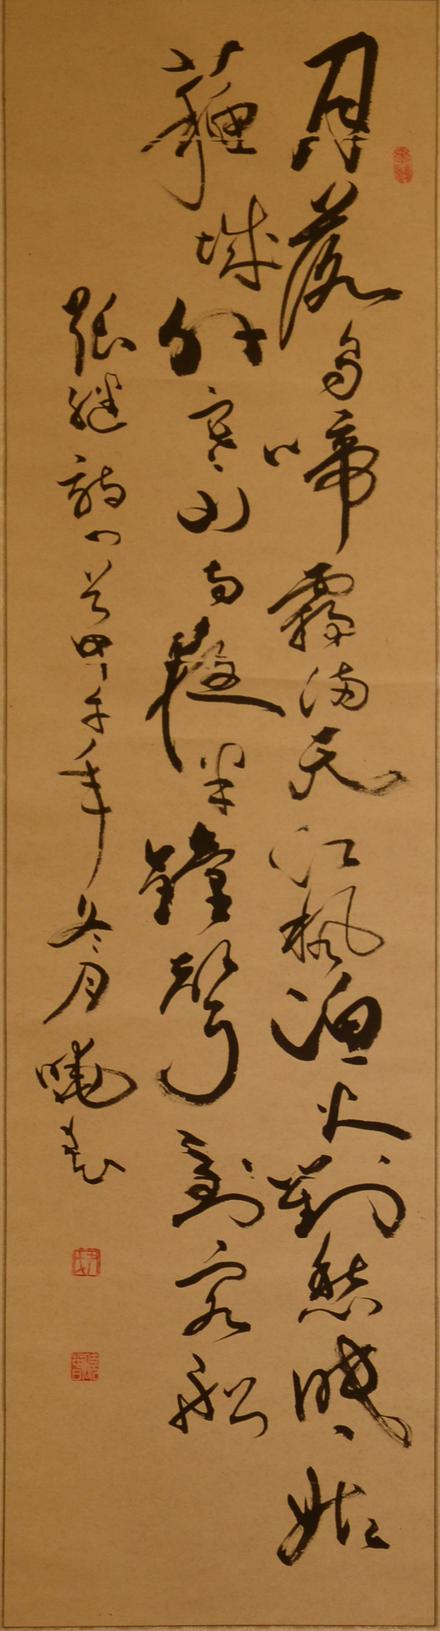 月落烏啼霜滿天江楓漁火對愁眠姑
蘇城外寒山寺夜半鐘聲到客船
張繼詩一首甲午年冬月